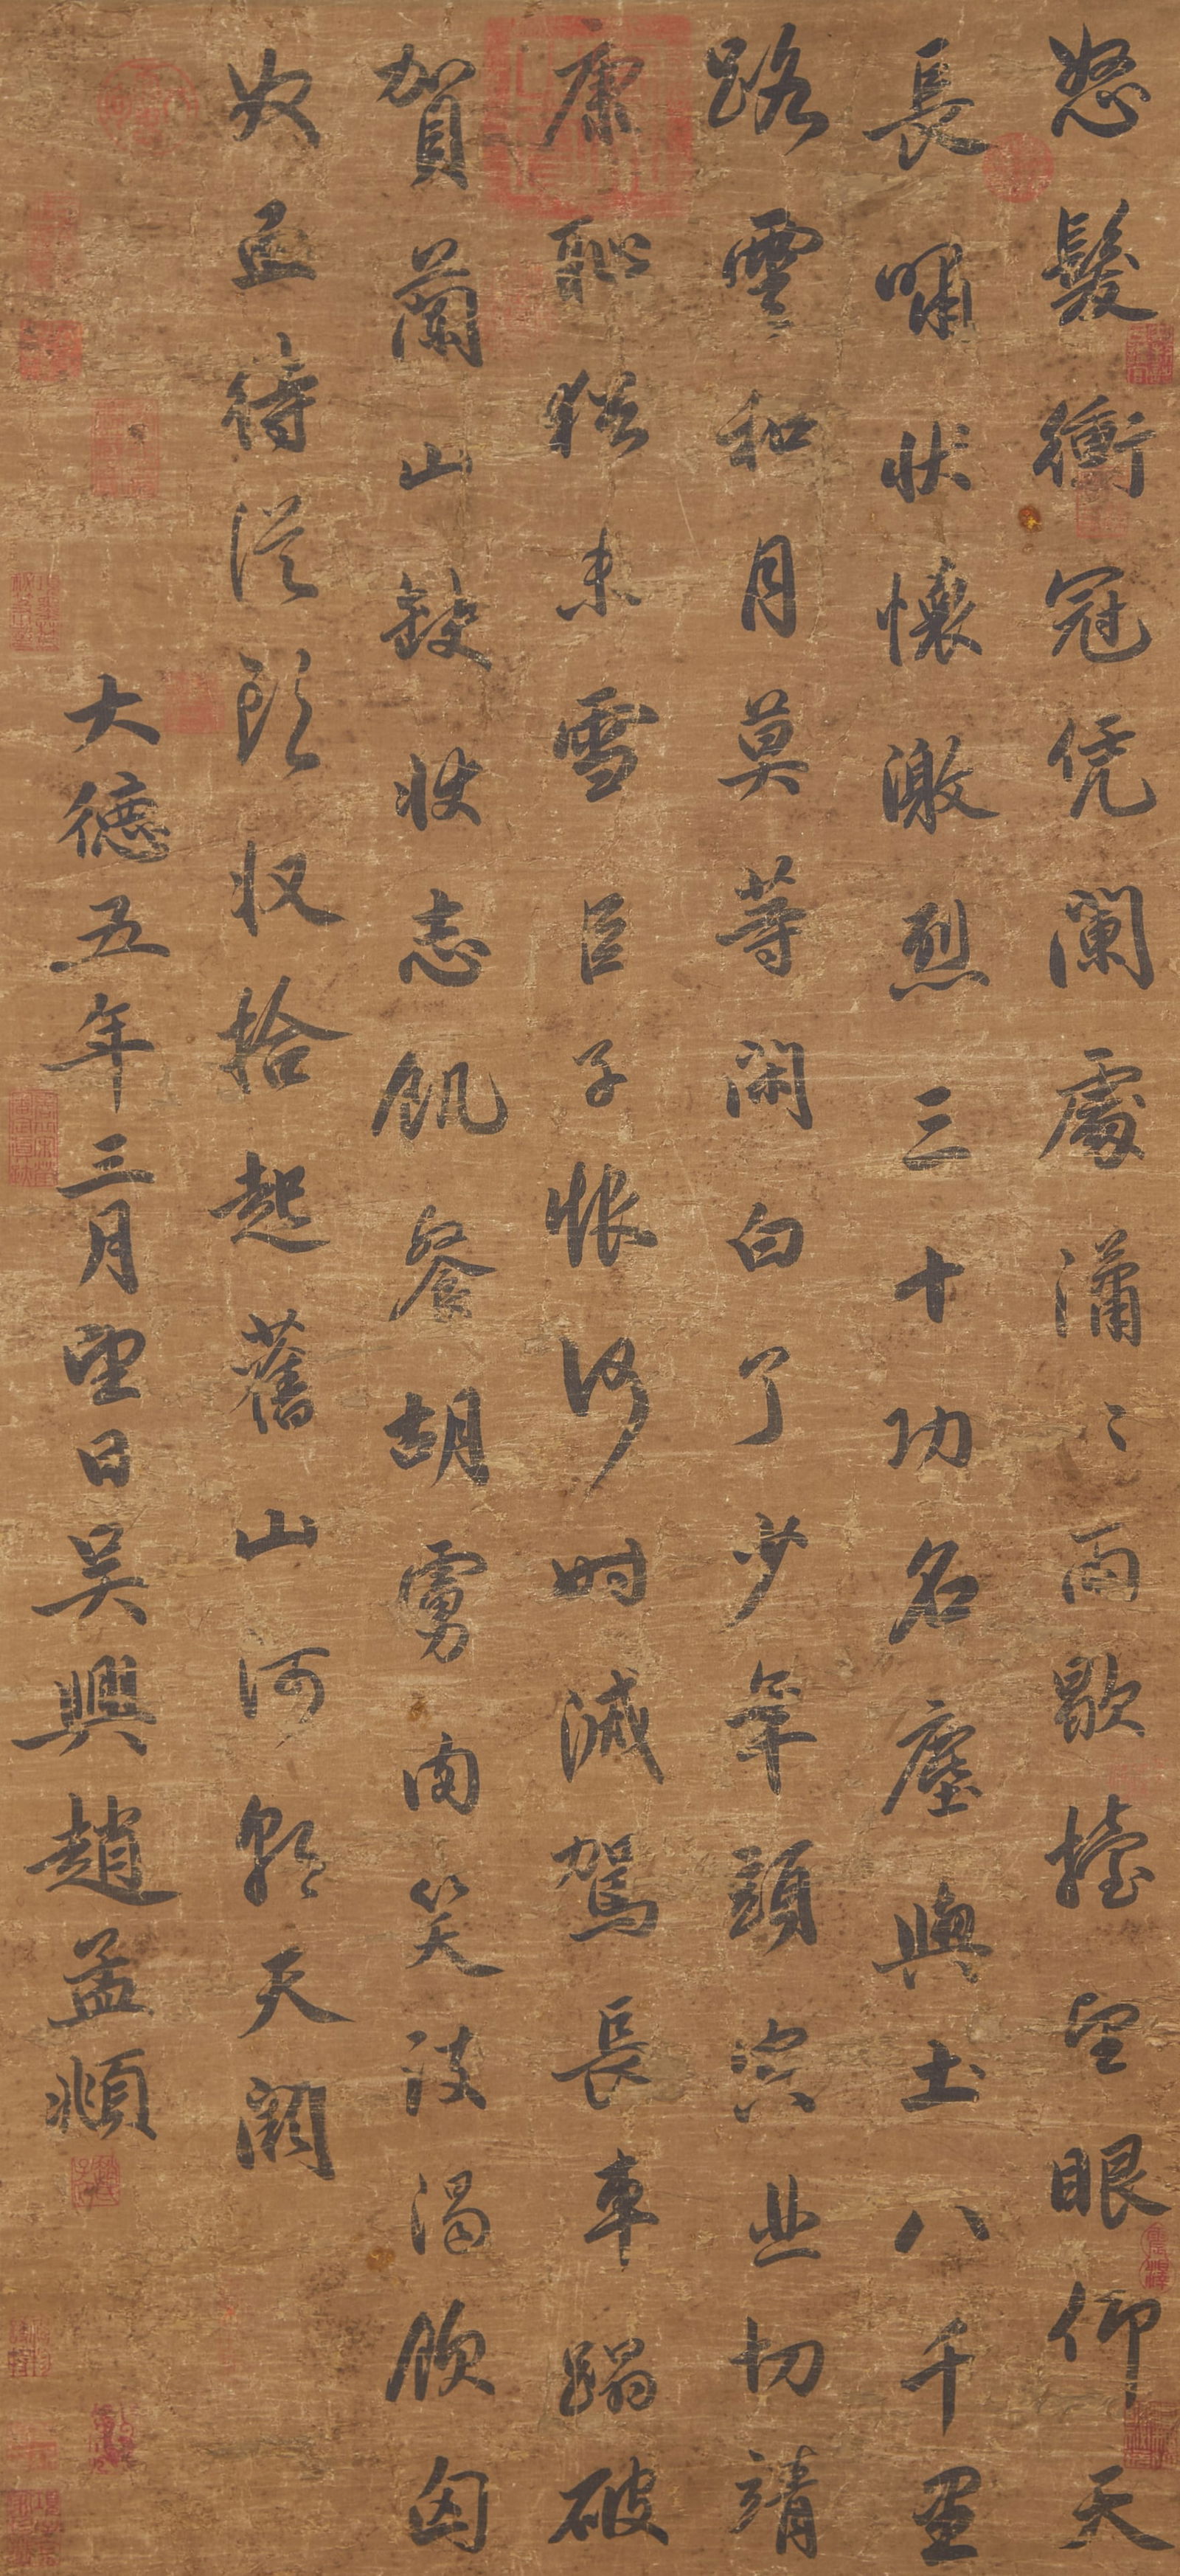 怒髮衝冠凭闌處瀟〻雨歇擡望眼仰天
長嘯壮懷激烈三十功名塵與土八千里
路雲和月莫等閑白了少年頭空悲切靖
康恥猶未雪臣子恨何时滅駕長車蹋破
賀蘭山缺壮志飢餐胡虜肉笑談渴飲匈
奴血待從頭收拾起舊山河朝天闕
大德五年三月望日吳興趙孟頫